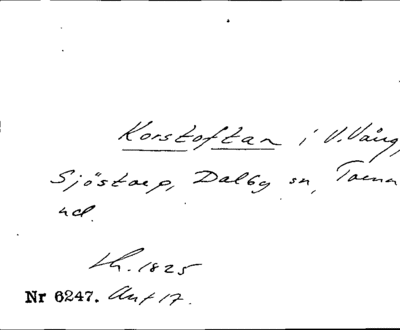 Korstoftan i V. Vång,
Sjöstorp, Dalby sn, Torna
hd.
Lh. 1825
Nr 6247. Ant 17.